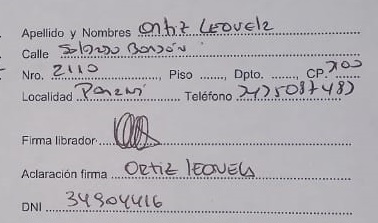 Apellido y Nombres Ortiz Leovela
Calle
Nro. 2110, Piso ......, Dpto. ......, CP. 3100
Localidad Paraná Teléfono
Firma librador
Aclaración firma ORTIZ LEOVELA
DNI 34904416